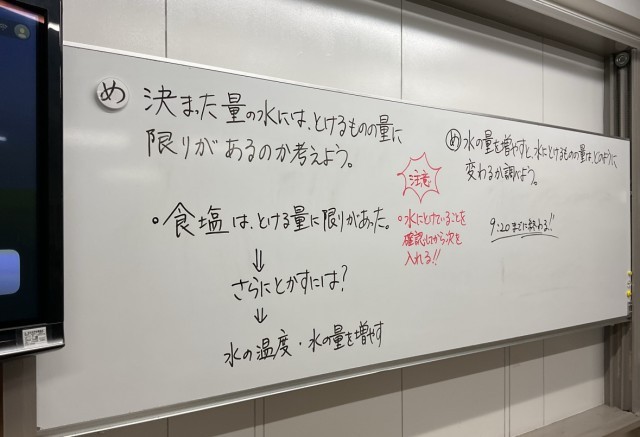 め
決まった量の水には、とけるものの量に
限りがあるのか考えよう。
・食塩は、とける量に限りがあった。
⇓
さらにとかすには?
↓
水の温度・水の量を増やす
め 水の量を増やすと、水にとけるものの量は、どのように
変わるか調べよう。
注意
・水にとけていることを
確認してから次を
入れる!!
9:20までに終わる!!